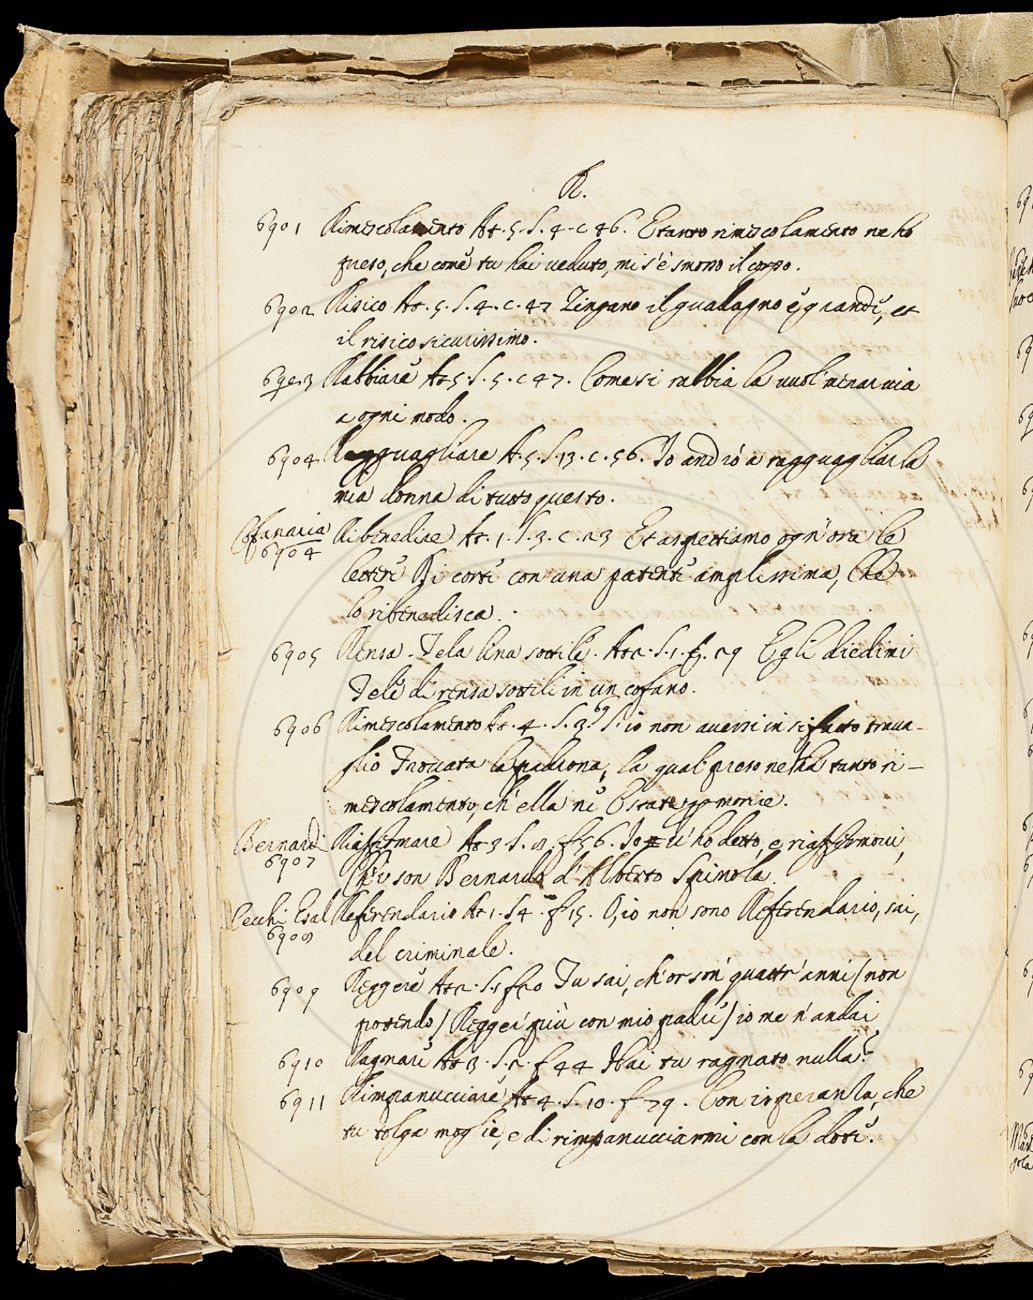 R.
6901 Rimescolamento At. 5. S. 4. c 46. E tanto rimescolamento ne ho
preso, che come tu hai veduto, mi s'è smosso il corpo.
6902 Risico At. 5. S. 4. c. 47 Zingano il guadagno è grande, et
il risico sicurissimo.
6903 Rabbiare At 5 S. 5. c 47. Come si rabbia la vuol menar via
a ogni modo.
6904 Ragguagliare At. 5. S. 13. c. 56. Io andrò a ragguagliar la
mia donna di tutto questo.
Cofanaria
6904 Ribenedire At. 1. S. 3. c. 23 Et aspettiamo ogn'ora le
lettere di corte con una patente amplissima, che
lo ribenedisca.
6905 Rensa. Tela lina sottile. At 2. S. 1. f. 29 Egli diedimi
Tele di rensa sottili in un cofano.
6906 Rimescolamento At. 4. S. 3 io non avessi in sì fatto trava-
glio Trovata la padrona, la quale preso ne ha tanto ri-
mescolamento, ch'ella n'è
Bernardi
6907 Riaffermare At 3 S. 8. f 56. Io v'ho detto, e riaffermovi,
Ch'io son Bernardo d'Alberto Spinola.
Cecchi Esal
6908 Referendario At 1. S 4. f 15. O, io non sono Referendario, sai,
del criminale.
6909 Reggere At 2. S. 1 f 20 Tu sai, ch'or son' quattr'anni / non
potendo / Regger più con mio padre / io me n'andai
6910 Ragnare At 3. S. 2. f 44 Hai tu ragnato nulla?
6911 Rimpannucciare At 4. S. 10. f 79. Con isperanza, che
tu tolga moglie, e di rimpannucciarmi con la dote.